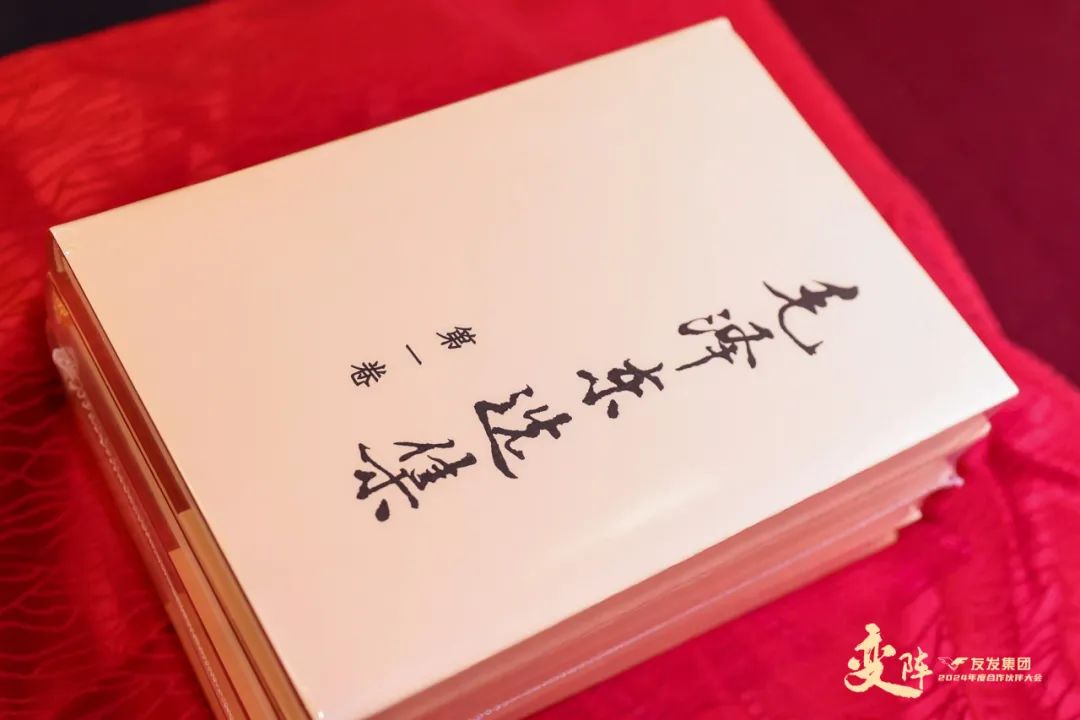 毛泽东选集
第一卷
变阵
友发集团
2024年度合作伙伴大会